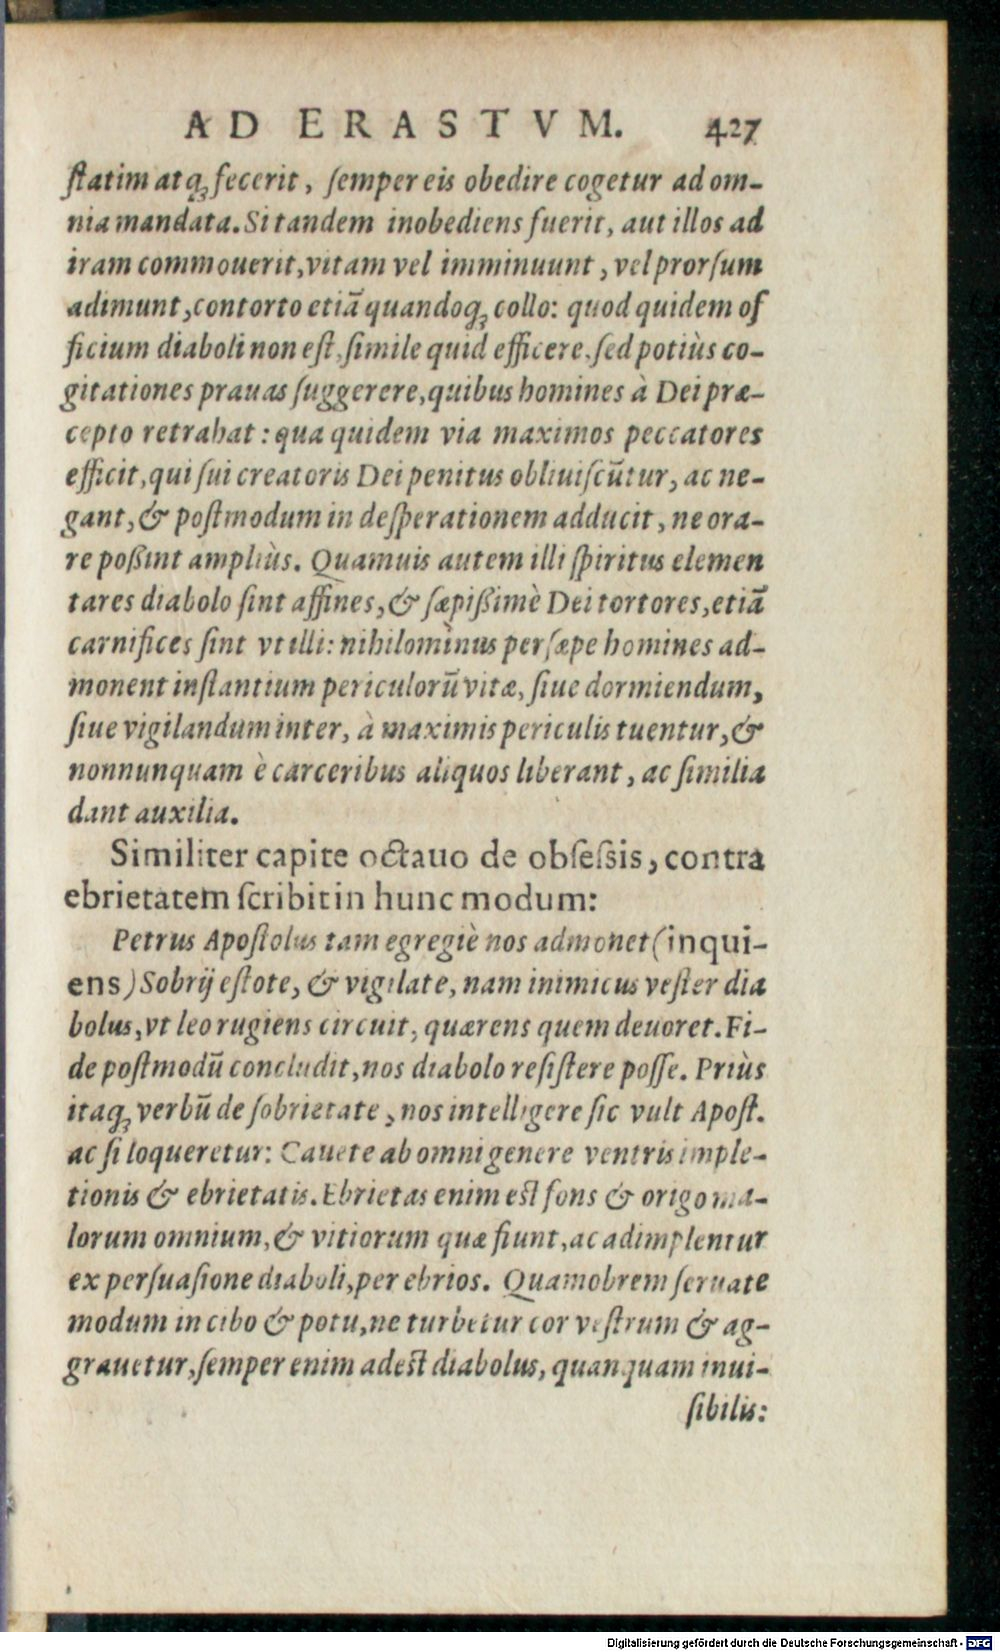 AD ERASTVM. 427
ſtatim atq́ꝫ fecerit, ſemper eis obedire cogetur ad om-
nia mandata. Si tandem inobediens fuerit, aut illos ad
iram commouerit, vitam vel imminuunt, vel prorſum
adimunt, contorto etiā quandoqꝫ collo: quod quidem of
ficium diaboli non eſt, ſimile quid efficere, ſed potiùs co-
gitationes prauas ſuggerere, quibus homines à Dei præ-
cepto retrahat: qua quidem via maximos peccatores
efficit, qui ſui creatoris Dei penitus obliuiſcūtur, ac ne-
gant, & poſtmodum in deſperationem adducit, ne ora-
re poßint ampliùs. Quamuis autem illi ſpiritus elemen
tares diabolo ſint affines, & ſæpißimè Dei tortores, etiā
carnifices ſint vt illi: nihilominùs perſæpe homines ad-
monent inſtantium periculorū vitæ, ſiue dormiendum,
ſiue vigilandum inter, à maximis periculis tuentur, &
nonnunquam è carceribus aliquos liberant, ac ſimilia
dant auxilia.
Similiter capite octauo de obſeſsis, contra
ebrietatem ſcribit in hunc modum:
Petrus Apoſtolus tam egregiè nos admonet (inqui-
ens) Sobrij eſtote, & vigilate, nam inimicus veſter dia
bolus, vt leo rugiens circuit, quærens quem deuoret. Fi-
de poſtmodū concludit, nos diabolo reſiſtere poſſe. Priùs
itaqꝫ verbū de ſobrietate, nos intelligere ſic vult Apoſt.
ac ſi loqueretur: Cauete ab omni genere ventris imple-
tionis & ebrietatis. Ebrietas enim eſt fons & origo ma-
lorum omnium, & vitiorum quæ fiunt, ac adimplentur
ex perſuaſione diaboli, per ebrios. Quamobrem ſeruate
modum in cibo & potu, ne turbetur cor veſtrum & ag-
grauetur, ſemper enim adeſt diabolus, quanquam inui-
ſibilis:
Digitalisierung gefördert durch die Deutsche Forschungsgemeinschaft - DFG